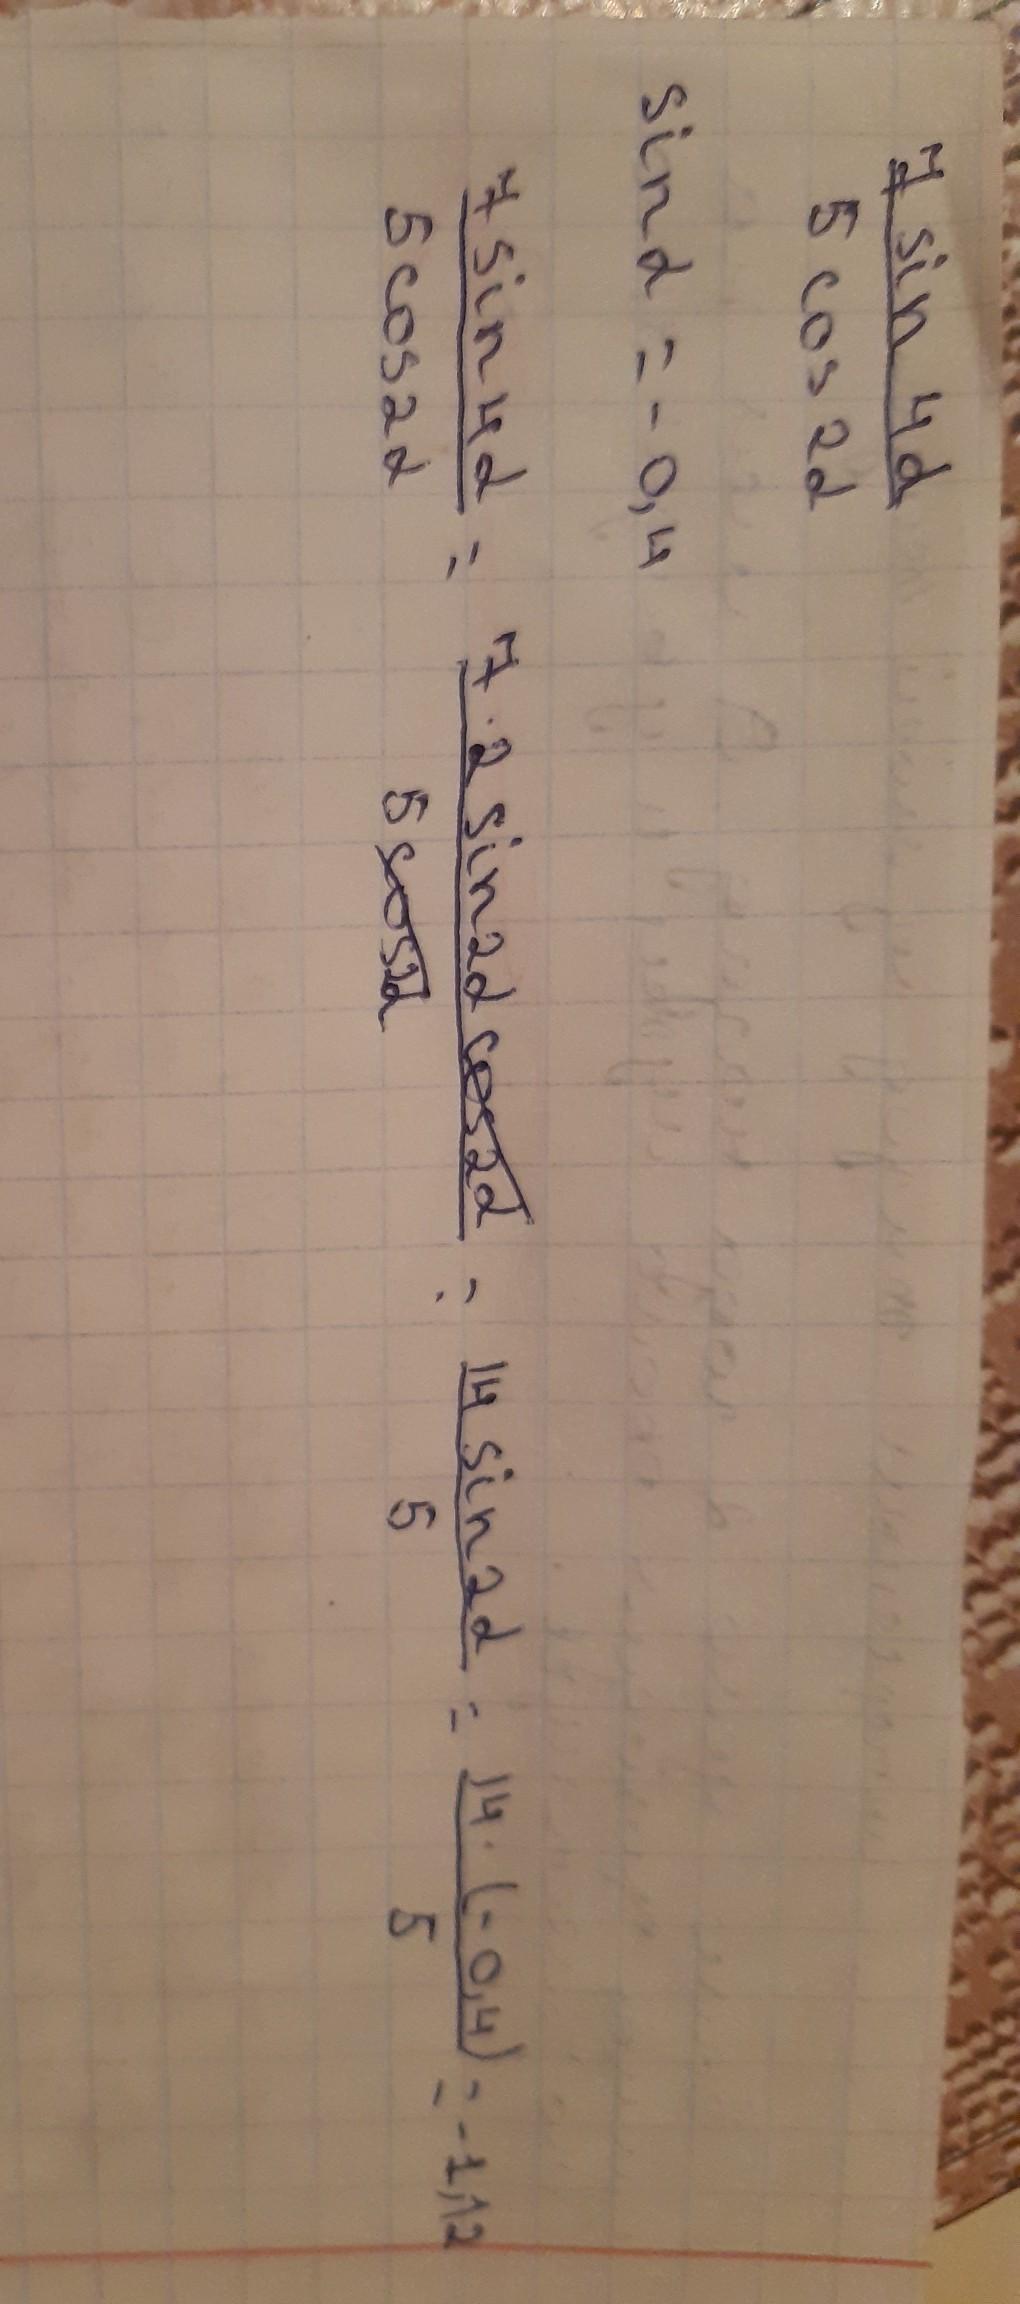 7 sin 4α
5 cos 2α
sin α = - 0,4
7 sin 4α / 5 cos 2α = 7 · 2 sin 2α cos 2α / 5 cos 2α = 14 sin 2α / 5 = 14 · (- 0,4) / 5 = - 1,12